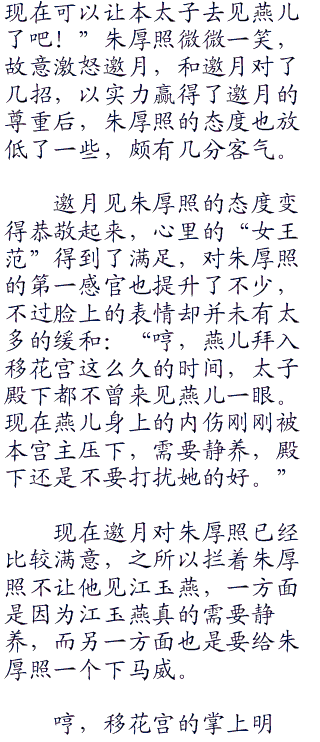 现在可以让本太子去见燕儿
了吧！”朱厚照微微一笑，
故意激怒邀月，和邀月对了
几招，以实力赢得了邀月的
尊重后，朱厚照的态度也放
低了一些，颇有几分客气。
邀月见朱厚照的态度变
得恭敬起来，心里的“女王
范”得到了满足，对朱厚照
的第一感官也提升了不少，
不过脸上的表情却并未有太
多的缓和：“哼，燕儿拜入
移花宫这么久的时间，太子
殿下都不曾来见燕儿一眼。
现在燕儿身上的内伤刚刚被
本宫主压下，需要静养，殿
下还是不要打扰她的好。”
现在邀月对朱厚照已经
比较满意，之所以拦着朱厚
照不让他见江玉燕，一方面
是因为江玉燕真的需要静
养，而另一方面也是要给朱
厚照一个下马威。
哼，移花宫的掌上明